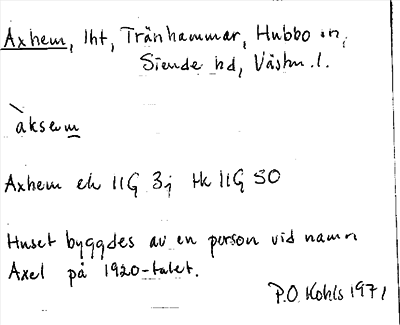 Axhem, lht, Tränhammar, Hubbo sn,
Siende hd, Västm. l.
`aksem
Axhem ek 11G 3j Hk 11G SO
Huset byggdes av en person vid namn
Axel på 1920-talet.
P.O. Kohls 1971